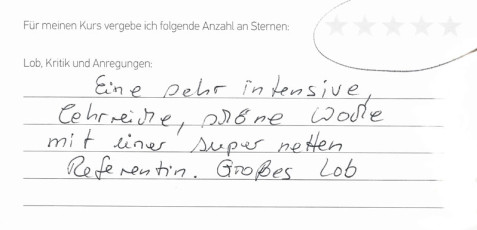 Für meinen Kurs vergebe ich folgende Anzahl an Sternen:
Lob, Kritik und Anregungen:
Eine sehr intensive,
lehrreiche, schöne Woche
mit einer super netten
Referentin. Großes Lob